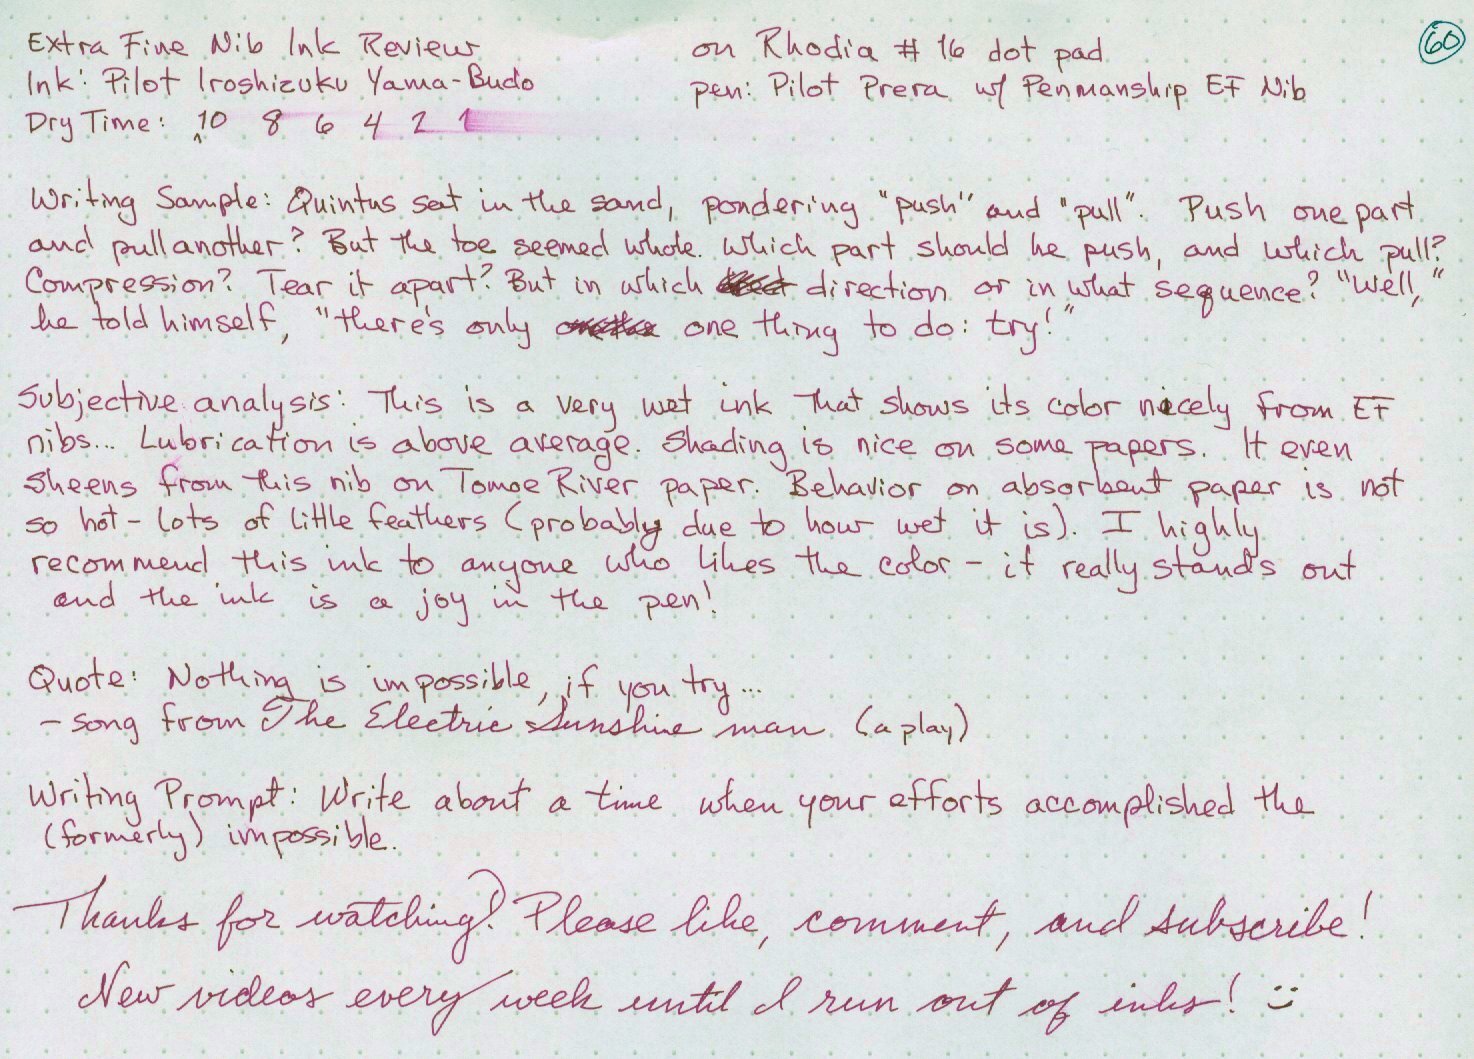 Extra Fine Nib Ink Review on Rhodia # 16 dot pad 60
Ink: Pilot Iroshizuku Yama-Budo pen: Pilot Prera w/ Penmanship EF Nib
Dry Time: 10 8 6 4 2 1
Writing Sample: Quintus sat in the sand, pondering "push" and "pull". Push one part
and pull another? But the toe seemed whole. Which part should he push, and which pull?
Compression? Tear it apart? But in which direction or in what sequence? "Well,"
he told himself, "there's only one thing to do: try!"
Subjective analysis: This is a very wet ink that shows its color nicely from EF
nibs... Lubrication is above average. Shading is nice on some papers. It even
sheens from this nib on Tomoe River paper. Behavior on absorbent paper is not
so hot - lots of little feathers (probably due to how wet it is). I highly
recommend this ink to anyone who likes the color - it really stands out
and the ink is a joy in the pen!
Quote: Nothing is impossible, if you try...
- song from The Electric Sunshine man (a play)
Writing Prompt: Write about a time when your efforts accomplished the
(formerly) impossible.
Thanks for watching! Please like, comment, and subscribe!
New videos every week until I run out of inks! :)